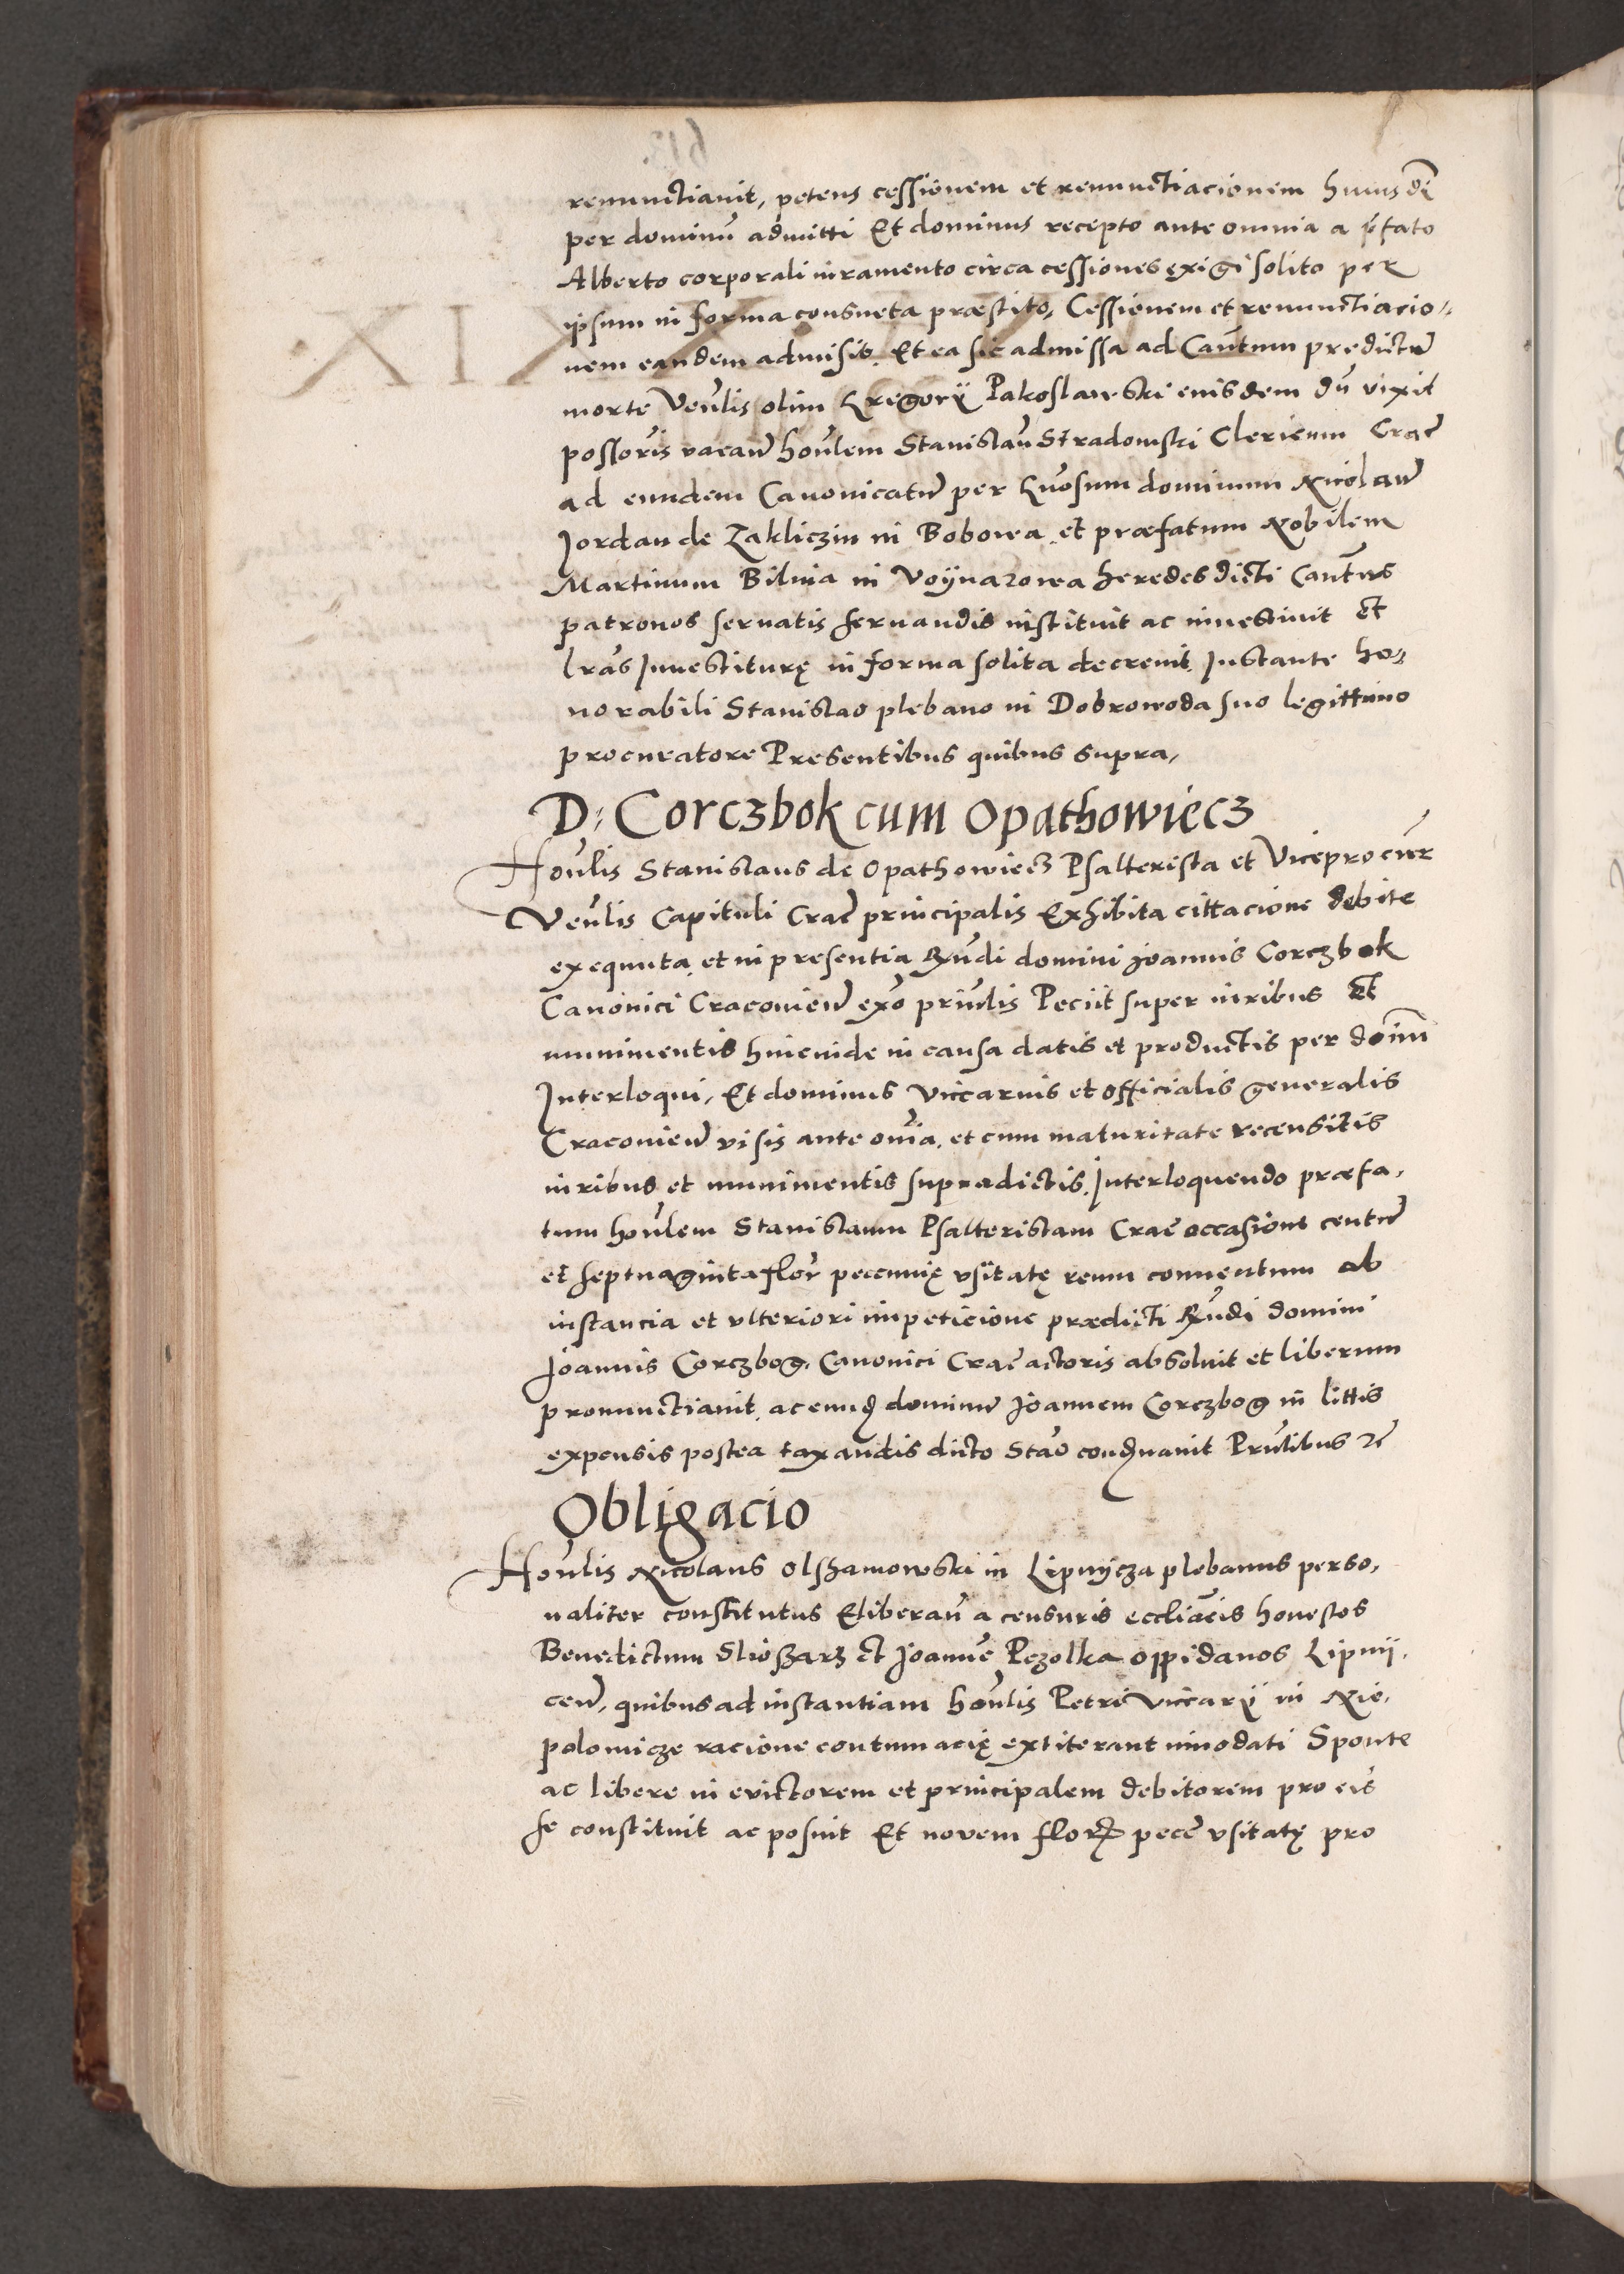 renunctiauit, petens cessionem et renunctiacionem huiusdē
per dominū admitti Et dominus recepto ante omnia a p̄fato
Alberto corporali iuramento circa cessiones exigi solito per
ipsum in forma consueta præstito, Cessionem et renunctiacio-
nem eandem admisit. Et ea sic admissa ad Cantum predictū
morte Venlis olim Gregorÿ Pakoslawski eiusdem dū vixit
possoris vacan̄ honlem Stanislaū Stradomski Clericum Crac̄
ad eundem Canonicatū per Gnosum dominum Nicolaū
Jordan de Zakliczin in Bobowa et præfatum Nobilem
Martinum Bilina in Voÿnarowa heredes dicti Cantus
patronos seruatis seruandis instituit ac inuestiuit Et
lrās Inuestiturę in forma solita decreuit. Instante ho-
norabili Stanislao plebano in Dobrowoda suo legittimo
procuratore Presentibus quibus supra,
D: Corczbok cum Opathowiecz
Honlis Stanislaus de Opathowiecz Psalterista et Viceprocur̄
Venlis Capituli Crac̄ principalis Exhibita cittacione debite
exequuta, et in presentia Rndi domini Joannis Corczbok
Canonici Cracovien̄ exō prinlis Peciit super iuribus Et
munimentis hincinde in causa datis et productis per doīm
Interloqui, Et dominus Viccarius et officialis generalis
Cracovien̄ visis ante omīa, et cum maturitate recensitis
iuribus et munimentis supradictis, Interloquendo præfa,
tum honlem Stanislaum Psalteristam Crac̄ occasione centū
et septuaginta flor̄ peccunię vsitatę reum conuentum ab
instancia et vlteriori impeticione prædicti Rndi domini
Joannis Corczbog, Canonici Crac̄ actoris absoluit et liberum
pronunctiauit, ac eund dominū Joannem Corczbog in littis
expensis postea taxandis dicto Stāo condnauit Prntibus zc̄
Obligacio
Honlis Nicolaus Olszamowski in Lipnÿcza plebanus perso,
naliter constitutus Eliberan̄ a censuris eccliācis honestos
Benedictum Sliosarz et Joannē Pezolka oppidanos Lipnij,
cen̄, quibus ad instantiam honlis Petri Viccarÿ in Nie,
polomicze racione contumacię extiterant innodati Sponte
ac libere in evictorem et principalem debitorem pro eis
se constituit ac posuit Et novem flor pecc̄ vsitatę pro